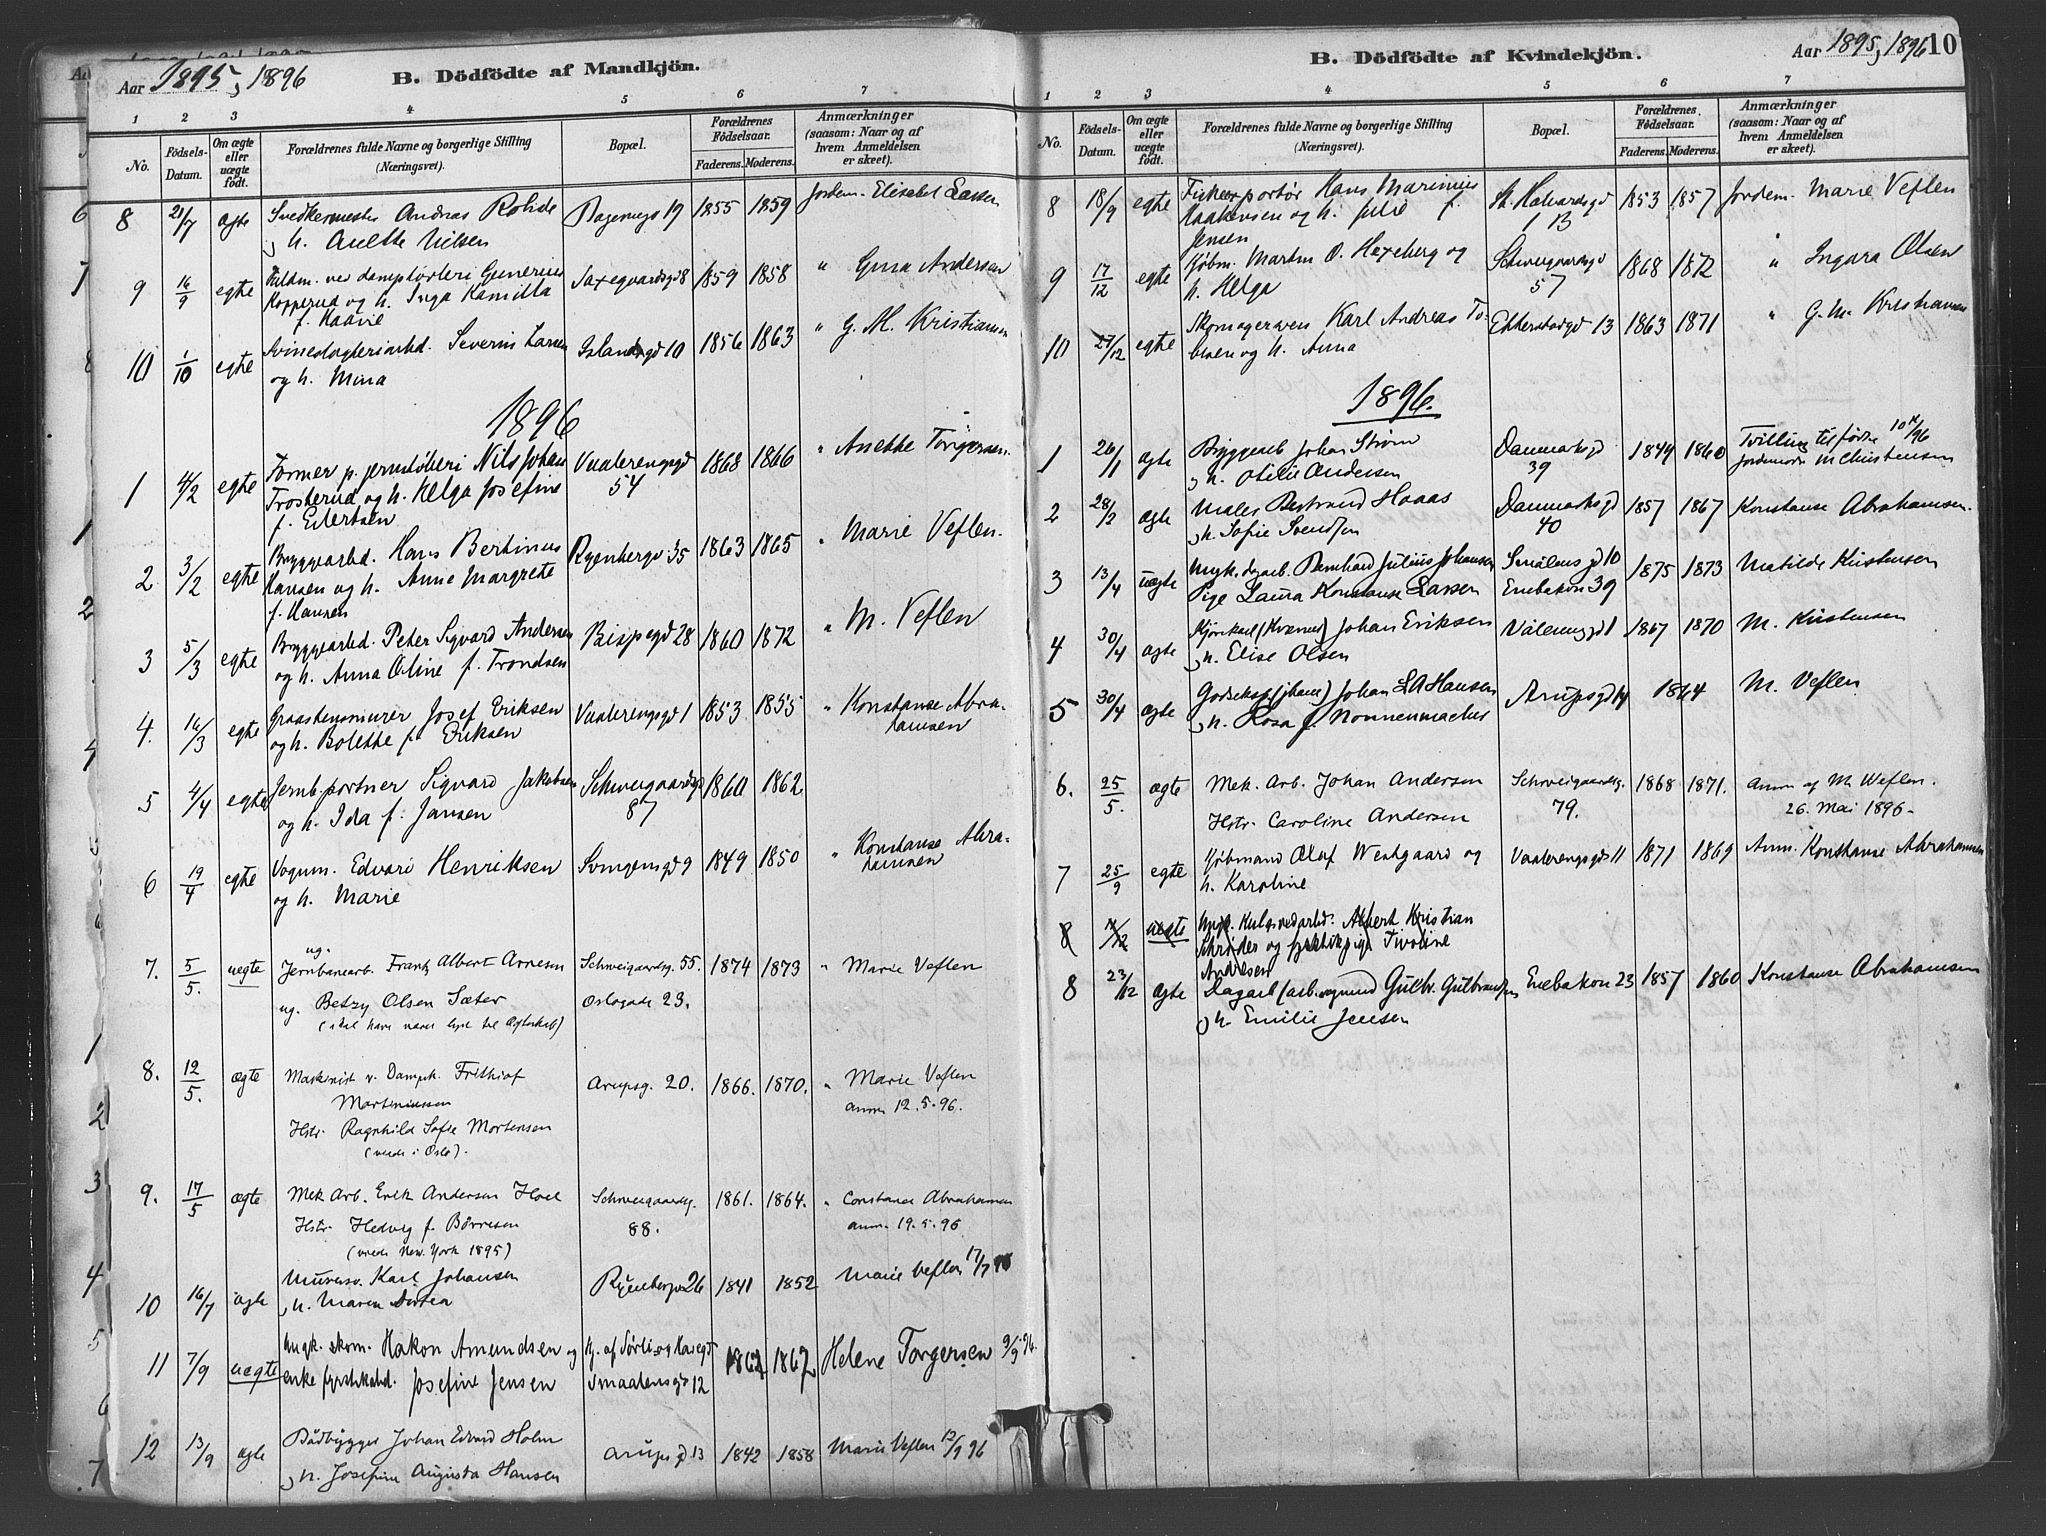 Aar 1895, 1896
B. Dödfödte af Mandkjön.
1 2 3 4 5 6 7
No.
Födsels-Datum.
Om ægte eller uægte födt.
Forældrenes fulde Navne og borgerlige Stilling (Næringsvei).
Bopæl.
Forældrenes Födselsaar.
Faderens. Moderens.
Anmærkninger (saasom: Naar og af hvem Anmeldelsen er skeet).
8 21/7 ægte Andreas Rohde 19 1855 1859 Jordem. Elisabet Larsen
h. Anette Nilsen
9 16/9 egte Gunerius Saxegaardsgd 8 1859 1858 " Gina Andersen
Kopperud og h. Inga Kamilla
f. Kaavie
10 1/10 egte Svineslagteriarbd. Severin Larsen Islandsgd 10 1856 1863 " G. M. Kristiansen
og h. Mina
1896
1 4/2 egte Former p. jernstøberi Nils Johan Vaalerengsgd 1868 1866 " Anette Torgersen
Trosterud og h. Helga Josefine 54
f. Eilertsen
2 3/2 egte Bryggearbd. Hans Bertinus Ryenbergv 35 1863 1865 " Marie Veflen
Hansen og h. Anne Margrete
f. Hansen
3 5/3 egte Bryggearbd. Peter Sigvard Andersen Bispegd 28 1860 1872 " M. Veflen
og h. Anna Oline f. Trondsen
4. 16/3 egte Graastensmurer Josef Eriksen Vaalerengsgd 1 1853 1855 " Konstanse Abra-
og h. Bolette f. Eriksen hamsen
5 4/4 egte Jernb.portner Sigvard Jakobsen Schweigaardsgd 1860 1862
og h. Ida f. Jansen 87
6 19/4 egte Vognm. Edvard Henriksen Svingensgd 9 1849 1850 " Konstanse Abra-
og h. Marie hamsen
ug.
7. 5/5. uegte Jernbanearb. Frantz Albert Arnesen Schweigaardsg. 55. 1874 1873 " Marie Veflen
ug. Betzy Olsen Sæter Oslogade 23.
(skal have været lyst til Ægteskab)
8. 12/5. ægte Maskinist v. Dampk. Frithiof Arupsg. 20. 1866. 1870. " Marie Veflen
Martiniussen anm 12.5.96.
Hstr. Ragnhild Sofie Mortensen
(viede i Oslo).
9. 17/5 ægte Mek Arb. Erik Andersen Hoel Schweigaardsg. 1861. 1864. " Constance Abrahamsen
Hstr. Hedvig f. Börresen 88. anm. 19.5.96
(viede New York 1895)
10 16/7 ægte Karl Johansen Ryenbergv 26 1841 1852 Marie Veflen 17/7
h. Maren Dortea
11 7/9 uegte Ungk. skom. Hakon Amundsen og 1862 1867 Helene Torgersen 9/9 96.
enke fyrstikabd. Josefine Jensen Smaalensgd 12
12 13/9 ægte Bådbygger Johan Edvard Holm Arupsgd 13 1842 1858 Marie Veflen 13/9 96
h. Josefine Augusta Hansen
B. Dödfödte af Kvindekjön.
Aar 1895, 1896 10
1 2 3 4 5 6 7
No.
Födsels-Datum.
Om ægte eller uægte födt.
Forældrenes fulde Navne og borgerlige Stilling (Næringsvei).
Bopæl.
Forældrenes Födselsaar.
Faderens. Moderens.
Anmærkninger (saasom: Naar og af hvem Anmeldelsen er skeet).
8 18/9 egte Hans Marinius St. Halvardsgd 1853 1857 Jordem. Marie Veflen
Haakensen og h. Julie f. 13
Jensen
9 17/12 egte Kjøbm. Martin O. Hexeberg og Schweigaardsgd 1868 1872 " Ingara Olsen
h. Helga 57
10 27/12 egte Skomagersven Karl Andreas To- Ekkersbergd 13 1863 1871 " G. M. Kristiansen
og h. Anna
1896.
1 26/1 ægte Bryggearb Johan Strøm Danmarksgd 1849 1860 Tvilling
h. Otilie Andersen 39 Jordemoder M Christensen
2 28/2 ægte Maler Bertrand Haaas Danmarksgd 1857 1867 Konstanse Abrahamsen.
h. Sofie Svendsen 40
3 13/4 uægte Ungk. dagarb. Bernhard Julius Johansen Smålens gd 10 1875 1873 Matilde Kristensen
Pige Laura Konstanse Larsen Enebakvn 39
4 30/4 ægte Johan Eriksen Vålerengd 1 1867 1870 M. Kristensen
h. Elise Olsen
5 30/4 ægte Johan L A Hansen Arupsgd 14 1864 M. Veflen
h. Rosa f. Nonnenmacher
6. 25/5. ægte Mek. Arb. Johan Andersen Schweigaardsg. 1868 1871. Anm af M. Veflen.
Hstr. Caroline Andersen 79. 26. Mai 1896.
7 25/9 egte Kjøbmand Olaf Westgaard og Vaalerengsgd 11 1871 1869 Anm. Konstanse Abrahamsen
h. Karoline
8 /12 uegte Ungk. Kulsvedarbd. Albert Kristian
Schrøder og fyrstikpige Tvoline
Andresen
8 23/12 ægte Dagarb Gulbr. Gulbrandsen Enebakvn 23 1857 1860 Konstanse Abrahamsen
h. Emilie Jensen